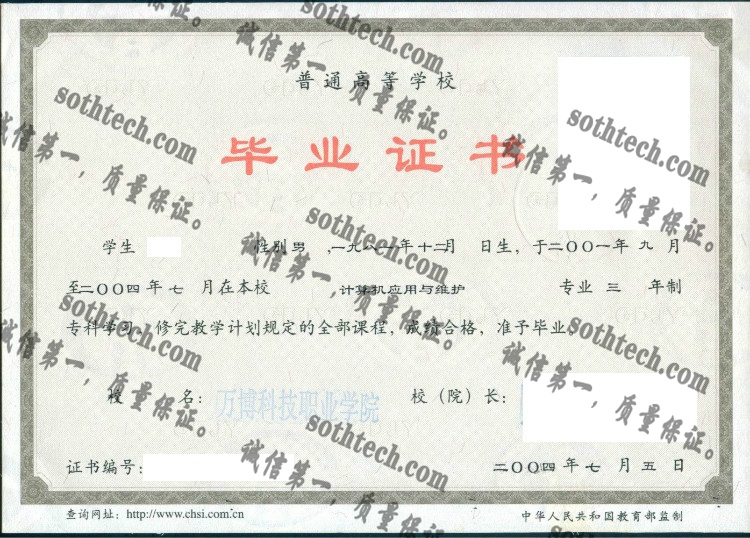 普通高等学校
毕业证书
学生 性别 男 ,一九八一年十二月 日生，于二〇〇一年 九 月
至二〇〇四年 七 月在本校 计算机应用与维护 专业 三 年制
专科学习，修完教学计划规定的全部课程，成绩合格，准予毕业。
校 名：万博科技职业学院 校（院）长：
证书编号： 二〇〇四年七月五日
查询网址：http://www.chsi.com.cn 中华人民共和国教育部监制
sothtech.com
诚信第一，质量保证。
sothtech.com
诚信第一，质量保证。
sothtech.com
诚信第一，质量保证。
sothtech.com
诚信第一，质量保证。
sothtech.com
诚信第一，质量保证。
sothtech.com
诚信第一，质量保证。
sothtech.com
诚信第一，质量保证。